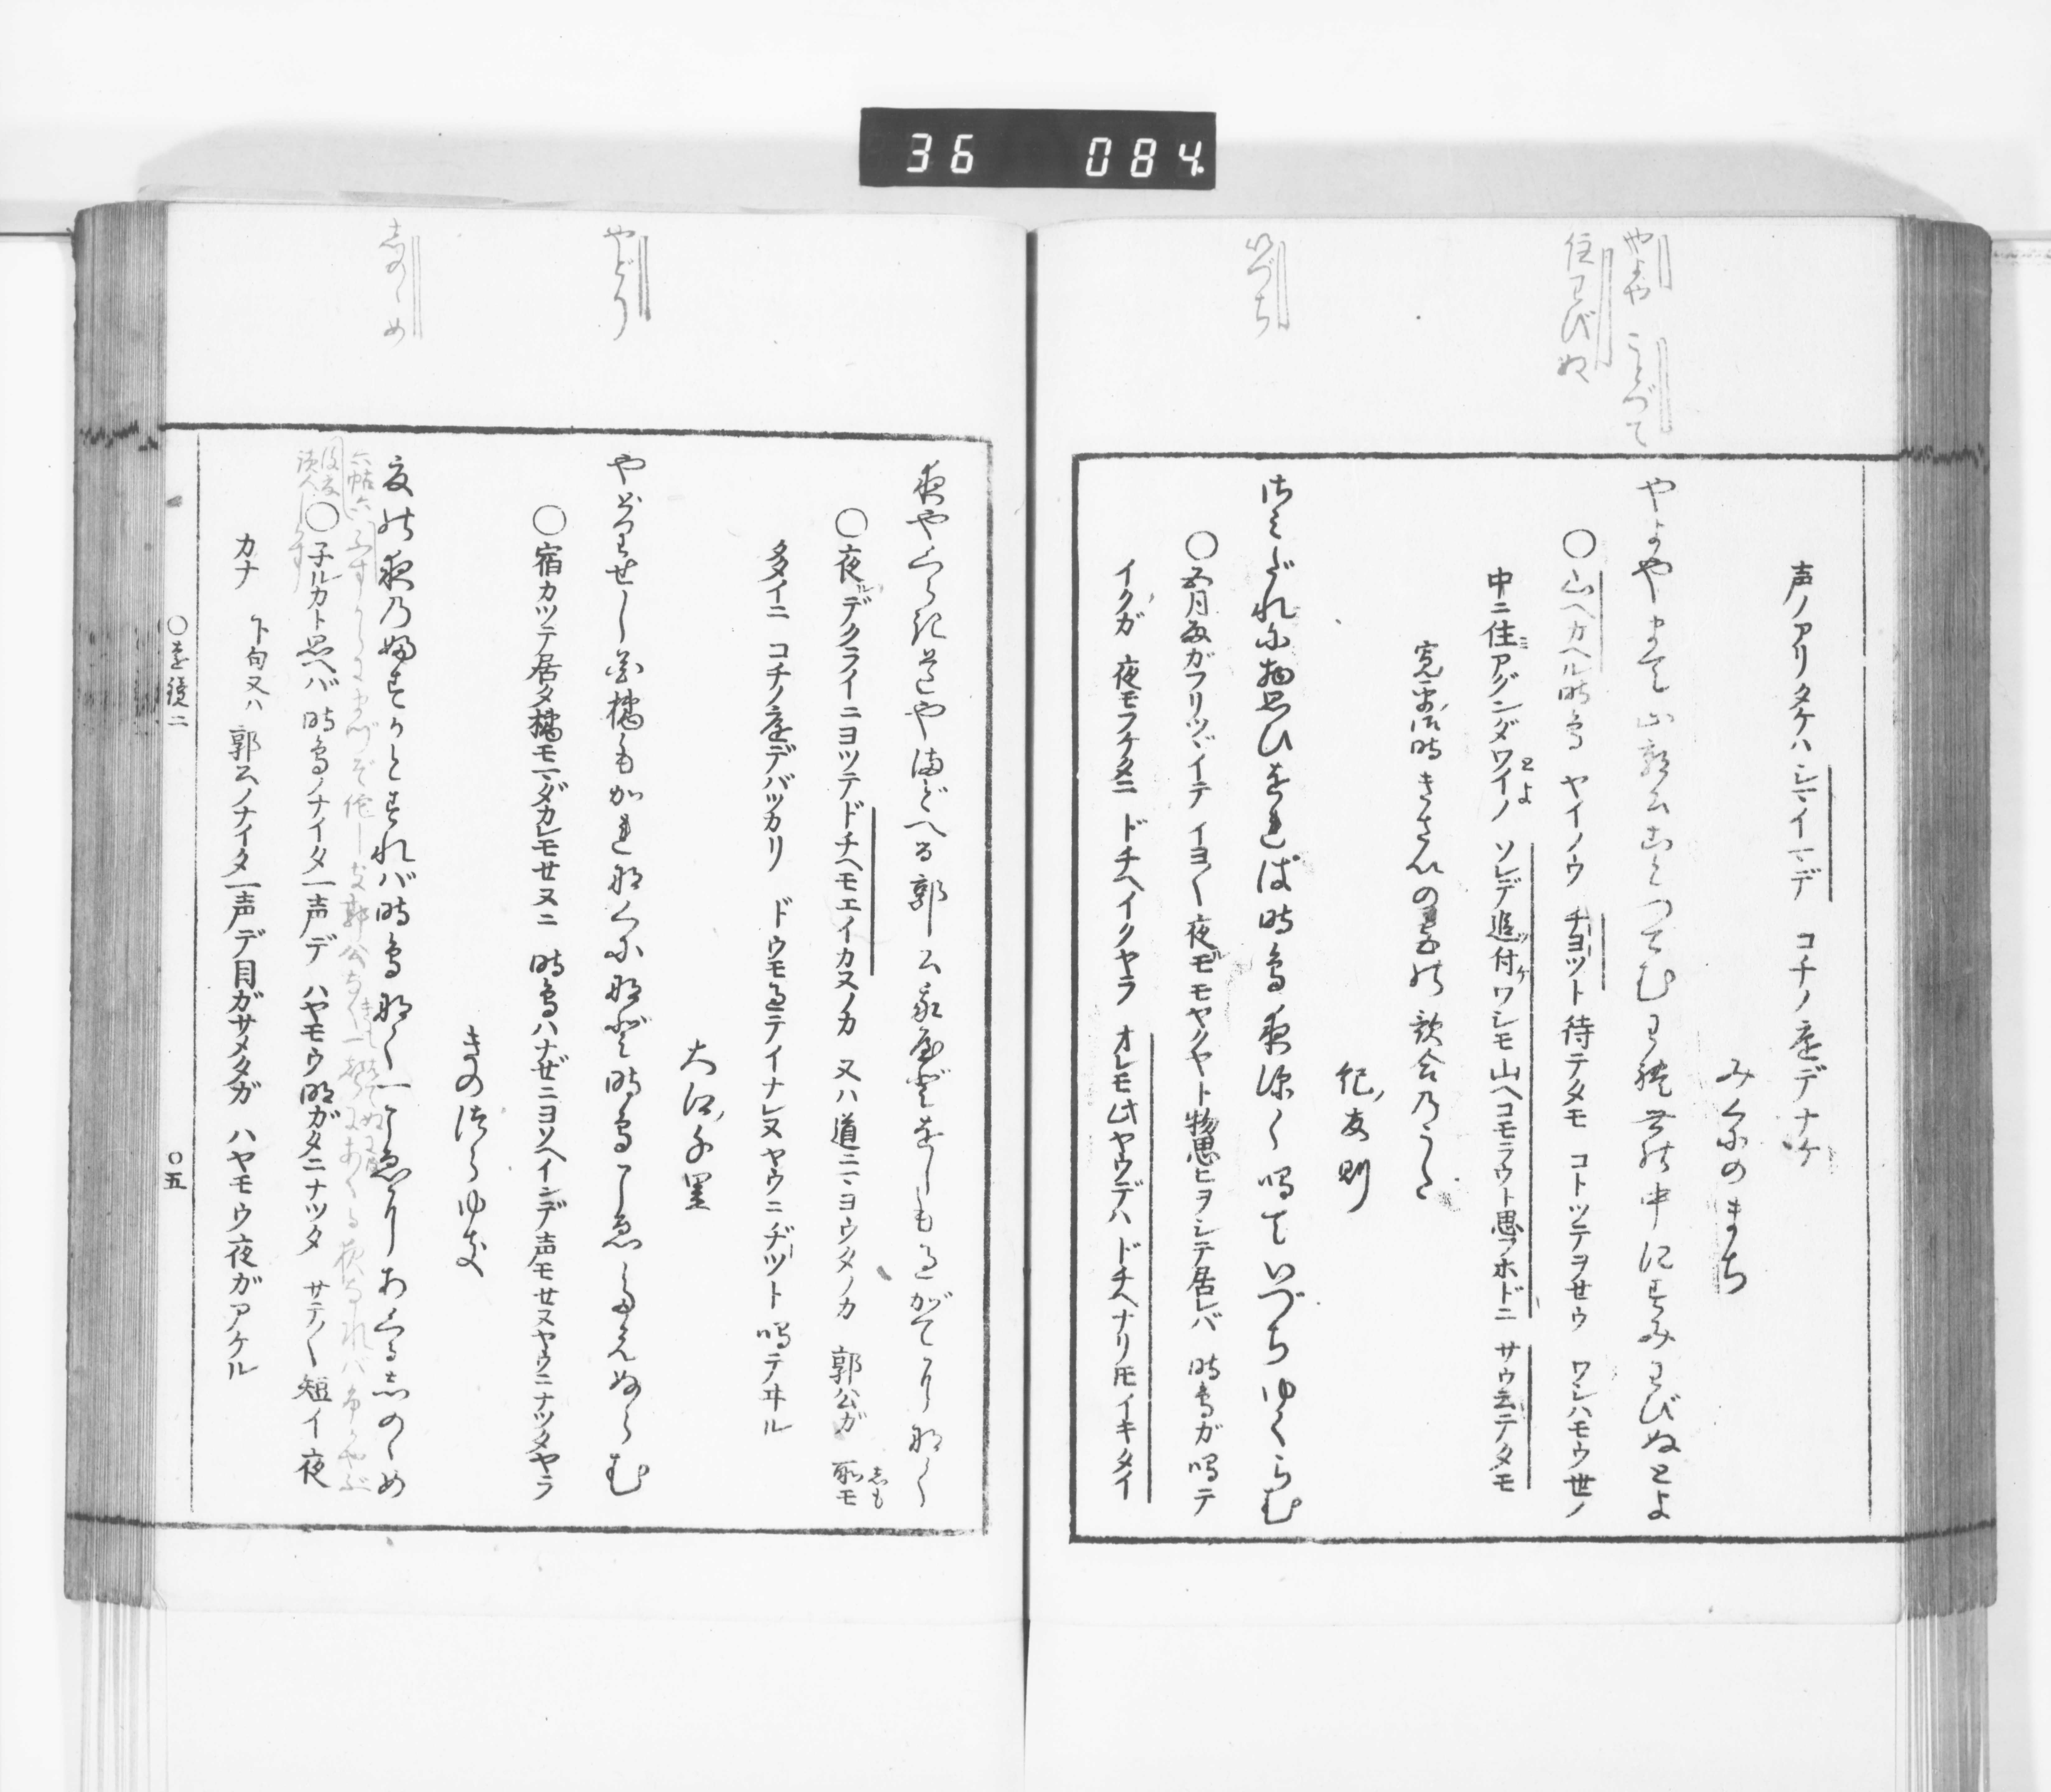 36 084
やよや ことづて
住わびぬ
いづち
声ノアリタケハシマイマデ コチノ庭デナケ
みくにのまち
やよやまて山郭公ことつてむわれ世の中にすみわびぬとよ
○山ヘカヘル時鳥 ヤイノウ チヨツト待テタモ コトツテヲセウ ワシハモウ世ノ
中ニ住アグンダワイノ ソレデ追付ワシモ山ヘコモラウト思フホドニ サウ云テタモ
寛平御時きさいの宮の歌合のうた
紀友則
さみだれに物思ひをれば時鳥夜深く鳴ていづちゆくらむ
○五月雨ガフリツヾイテ イヨ〱夜モモヤクヤト物思ヒヲシテ居レバ 時鳥ガ鳴テ
イクガ 夜モフケタニ ドチヘイクヤラ オレモ此ヤウデハ ドチヘナリトモイキタイ
やどり
しのゝめ
夜やくらき道やまどへる郭公我屋どをしも過がてになく
○夜ガクライニヨツテドチヘモエイカヌノカ 又ハ道ニマヨウタノカ 郭公ガ
タイニ コチノ庭デバツカリ ドウモ過テイナレヌヤウニ ヂツト鳴テヰル
大江千里
やどりせし花橘もかれなくになど時鳥こゑたえぬらむ
○宿カツテ居タ橘モマダカレモセヌニ 時鳥ハナゼニヨソヘインデ声モセヌヤウニナツタヤラ
きのつらゆき
夏の夜のふすかとすれバ時鳥なく一こゑにあくるしのゝめ
○子ルカト思ヘバ 時鳥ノナイタ一声デ ハヤモウ明ガタニナツタ サテ〱短イ夜
カナ 下句又ハ 郭公ノナイタ一声デ目ガサメタガ ハヤモウ夜ガアケル
○遠鏡二 ○五